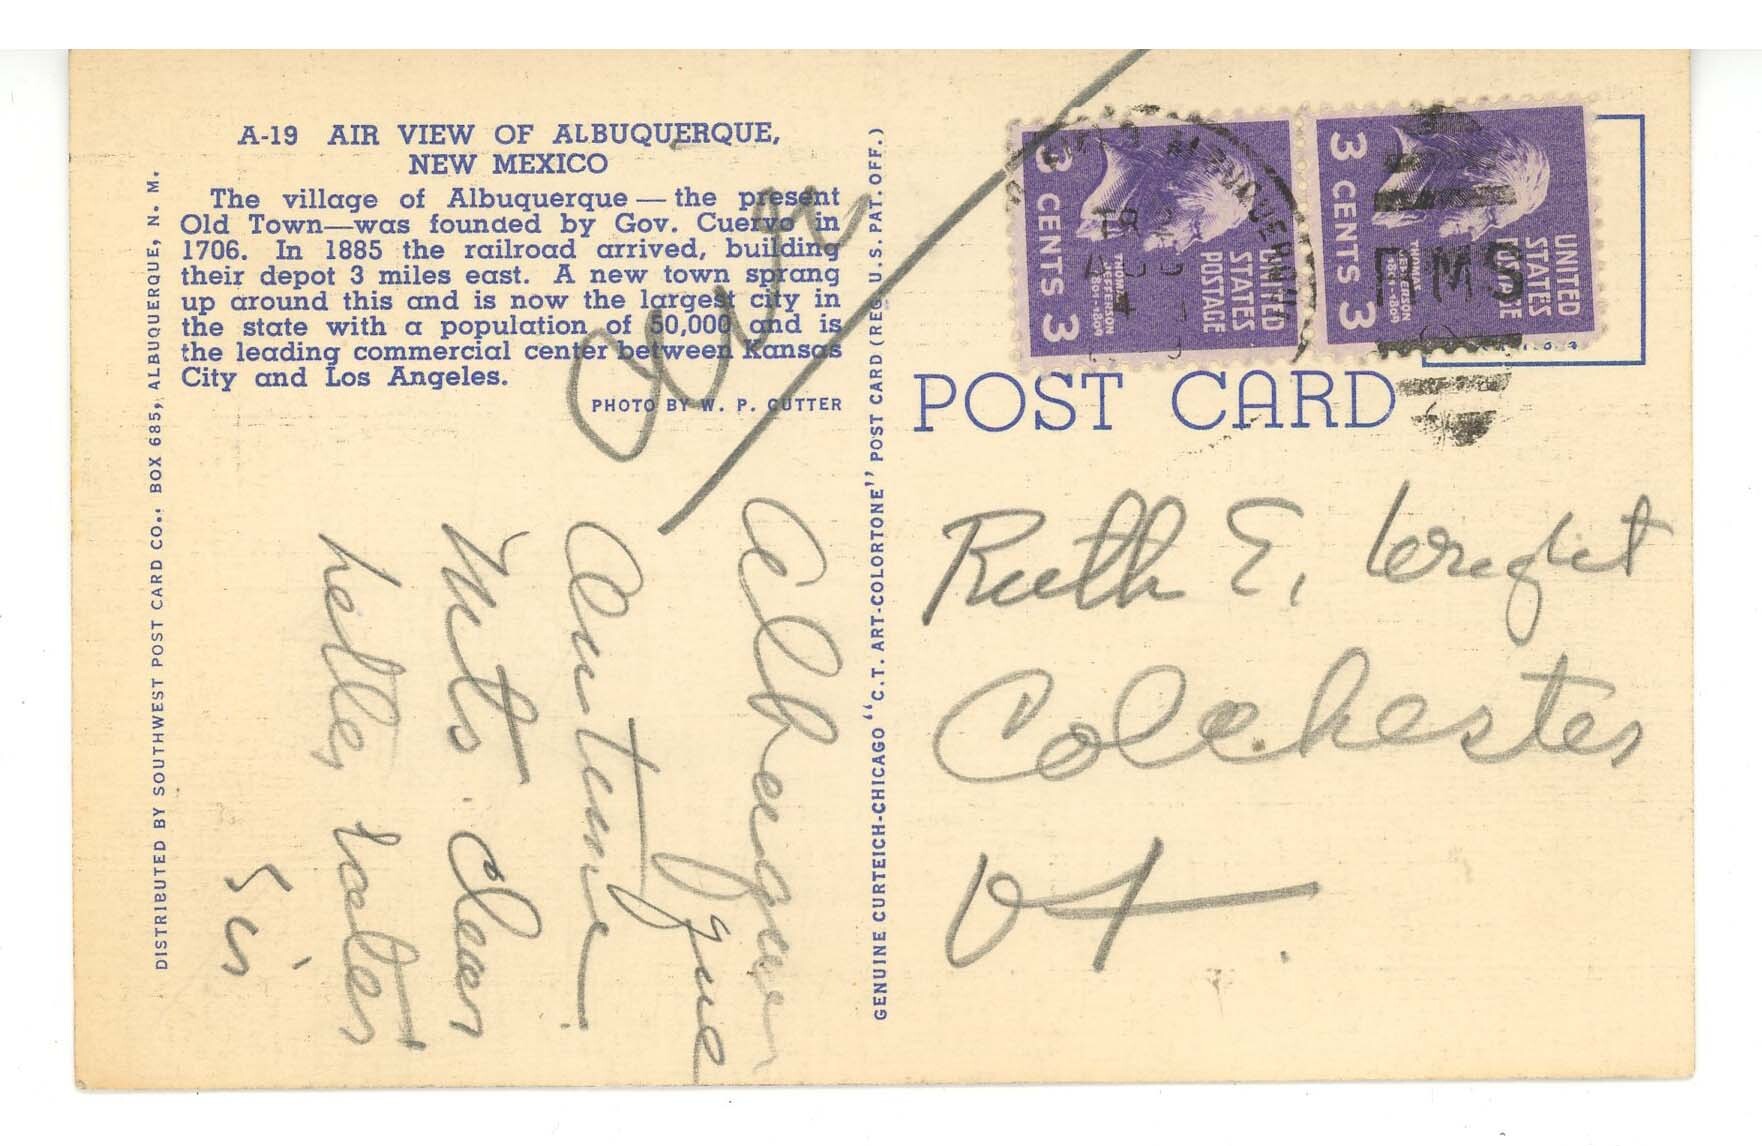 A-19 AIR VIEW OF ALBUQUERQUE,
NEW MEXICO
The village of Albuquerque — the present
Old Town—was founded by Gov. Cuervo in
1706. In 1885 the railroad arrived, building
their depot 3 miles east. A new town sprang
up around this and is now the largest city in
the state with a population of 50,000 and is
the leading commercial center between Kansas
City and Los Angeles.
PHOTO BY W. P. CUTTER
DISTRIBUTED BY SOUTHWEST POST CARD CO., BOX 685, ALBUQUERQUE, N. M.
GENUINE CURTEICH-CHICAGO "C.T. ART-COLORTONE" POST CARD (REG. U.S. PAT. OFF.)
over
Albequer
que
letter later
Sis
UNITED
STATES
POSTAGE
THOMAS
JEFFERSON
1801-1809
3 CENTS 3
UNITED
STATES
POSTAGE
THOMAS
JEFFERSON
1801-1809
3 CENTS 3
ALBUQUERQUE
RMS
POST CARD
Ruth E. Wright
Colchester
Vt.